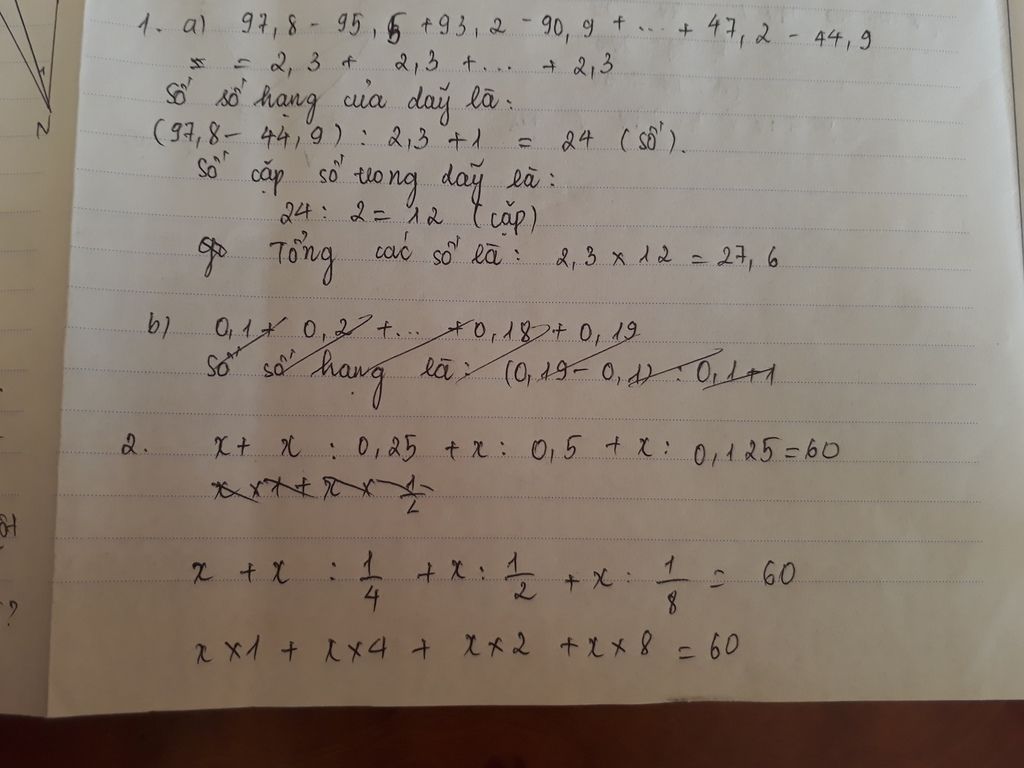 1. a) 97,8 - 95,5 + 93,2 - 90,9 + ... + 47,2 - 44,9
= = 2,3 + 2,3 + ... + 2,3
Số số hạng của dãy là:
(97,8 - 44,9) : 2,3 + 1 = 24 (số).
Số cặp số trong dãy là:
24 : 2 = 12 (cặp)
Tổng các số là: 2,3 × 12 = 27,6
b) 0,1 + 0,2 + ... + 0,18 + 0,19
Số số hạng là: (0,19 - 0,1) : 0,1 + 1
2. x + x : 0,25 + x : 0,5 + x : 0,125 = 60
x × 1 + x × 1/2
x + x : 1/4 + x : 1/2 + x : 1/8 = 60
x × 1 + x × 4 + x × 2 + x × 8 = 60
N
?